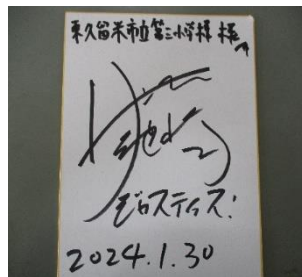 東久留米市立第三小学校 様へ
ジャスティス!
2024.1.30